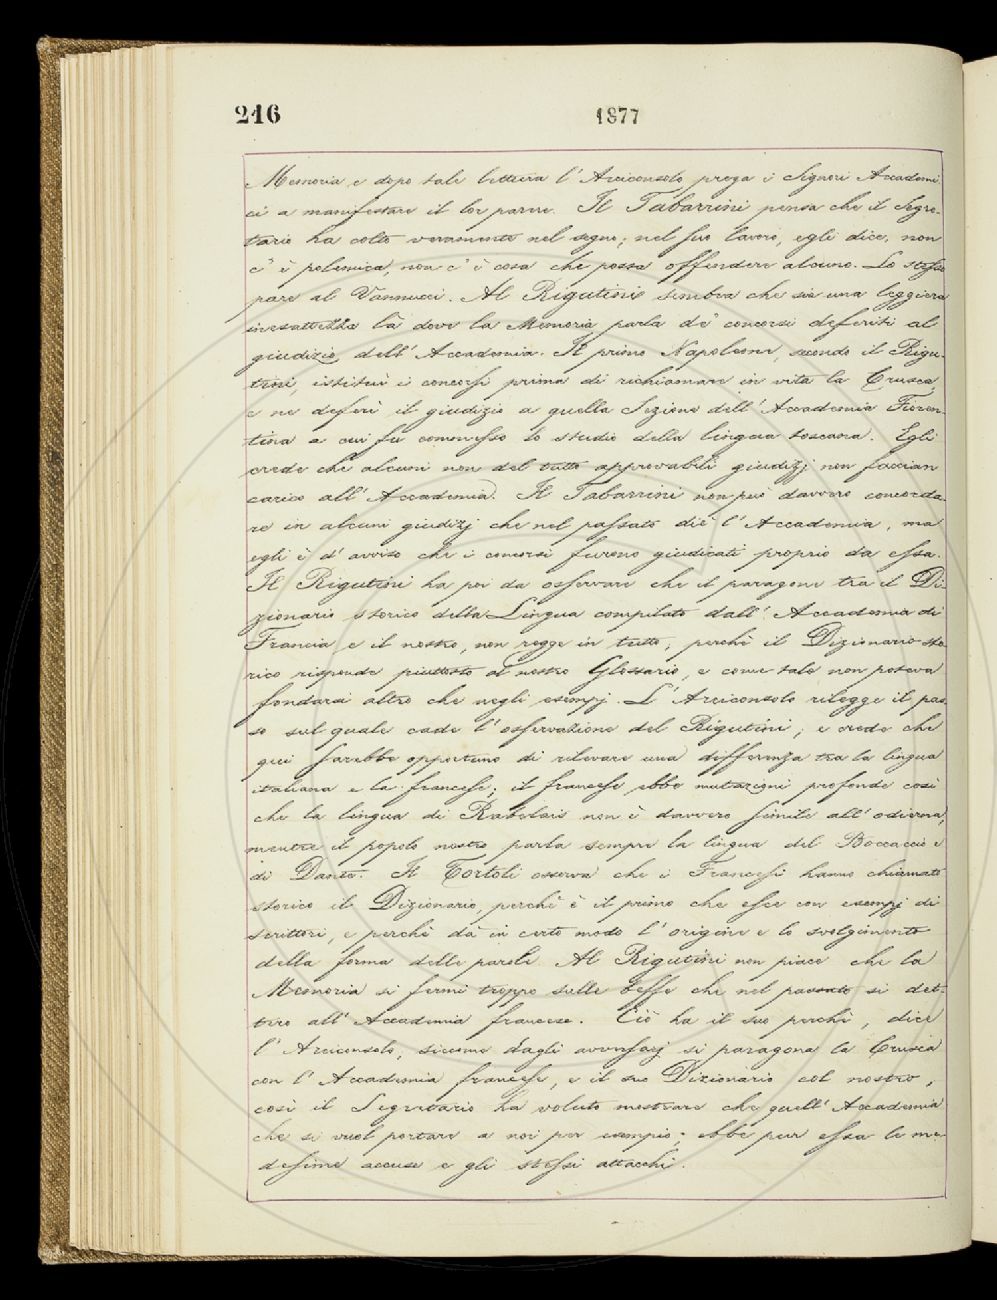 216
1877
Memoria e dopo tale lettura l'Arciconsolo prega i Signori Accademi-
ci a manifestare il lor parere. Il Tabarrini pensa che il Segre-
tario ha colto veramente nel segno; nel suo lavoro, egli dice, non
c'è polemica, non c'è cosa che possa offendere alcuno. Lo stesso
pare al Vannucci. Al Rigutini sembra che sia una leggiera
inesattezza là dove la Memoria parla de' concorsi deferiti al
giudizio dell'Accademia. Il primo Napoleone, secondo il Rigu-
tini, istituì i concorsi prima di richiamare in vita la Crusca,
e ne deferì il giudizio a quella Sezione dell'Accademia Fioren-
tina a cui fu commesso lo studio della lingua toscana. Egli
crede che alcuni non del tutto approvabili giudizj non faccian
carico all'Accademia. Il Tabarrini non può davvero concorda-
re in alcuni giudizj che nel passato diè l'Accademia, ma
egli è d'avviso che i concorsi furono giudicati proprio da essa.
Il Rigutini ha poi da osservare che il paragone tra il Di-
zionario storico della Lingua compilato dall'Accademia di
Francia e il nostro, non regge in tutto; perchè il Dizionario sto-
rico risponde piuttosto al nostro Glossario, e come tale non poteva
fondarsi altro che negli esempj. L'Arciconsolo rilegge il pas-
so sul quale cade l'osservazione del Rigutini; e crede che
qui sarebbe opportuno di rilevare una differenza tra la lingua
italiana e la francese; il francese ebbe mutazioni profonde così
che la lingua di Rabelais non è davvero simile all'odierna,
mentre il popolo nostro parla sempre la lingua del Boccaccio e
di Dante. Il Tortoli osserva che i Francesi hanno chiamato
storico il Dizionario, perchè è il primo che esce con esempj di
scrittori, e perchè dà in certo modo l'origine e lo svolgimento
della forma delle parole. Al Rigutini non piace che la
Memoria si fermi troppo sulle beffe che nel passato si det-
tero all'Accademia francese. Ciò ha il suo perchè, dice
l'Arciconsolo, siccome dagli avversarj si paragona la Crusca
con l'Accademia francese, e il suo Dizionario col nostro,
così il Segretario ha voluto mostrare che quell'Accademia
che si vuol portare a noi per esempio, ebbe pur essa le me-
desime accuse e gli stessi attacchi.